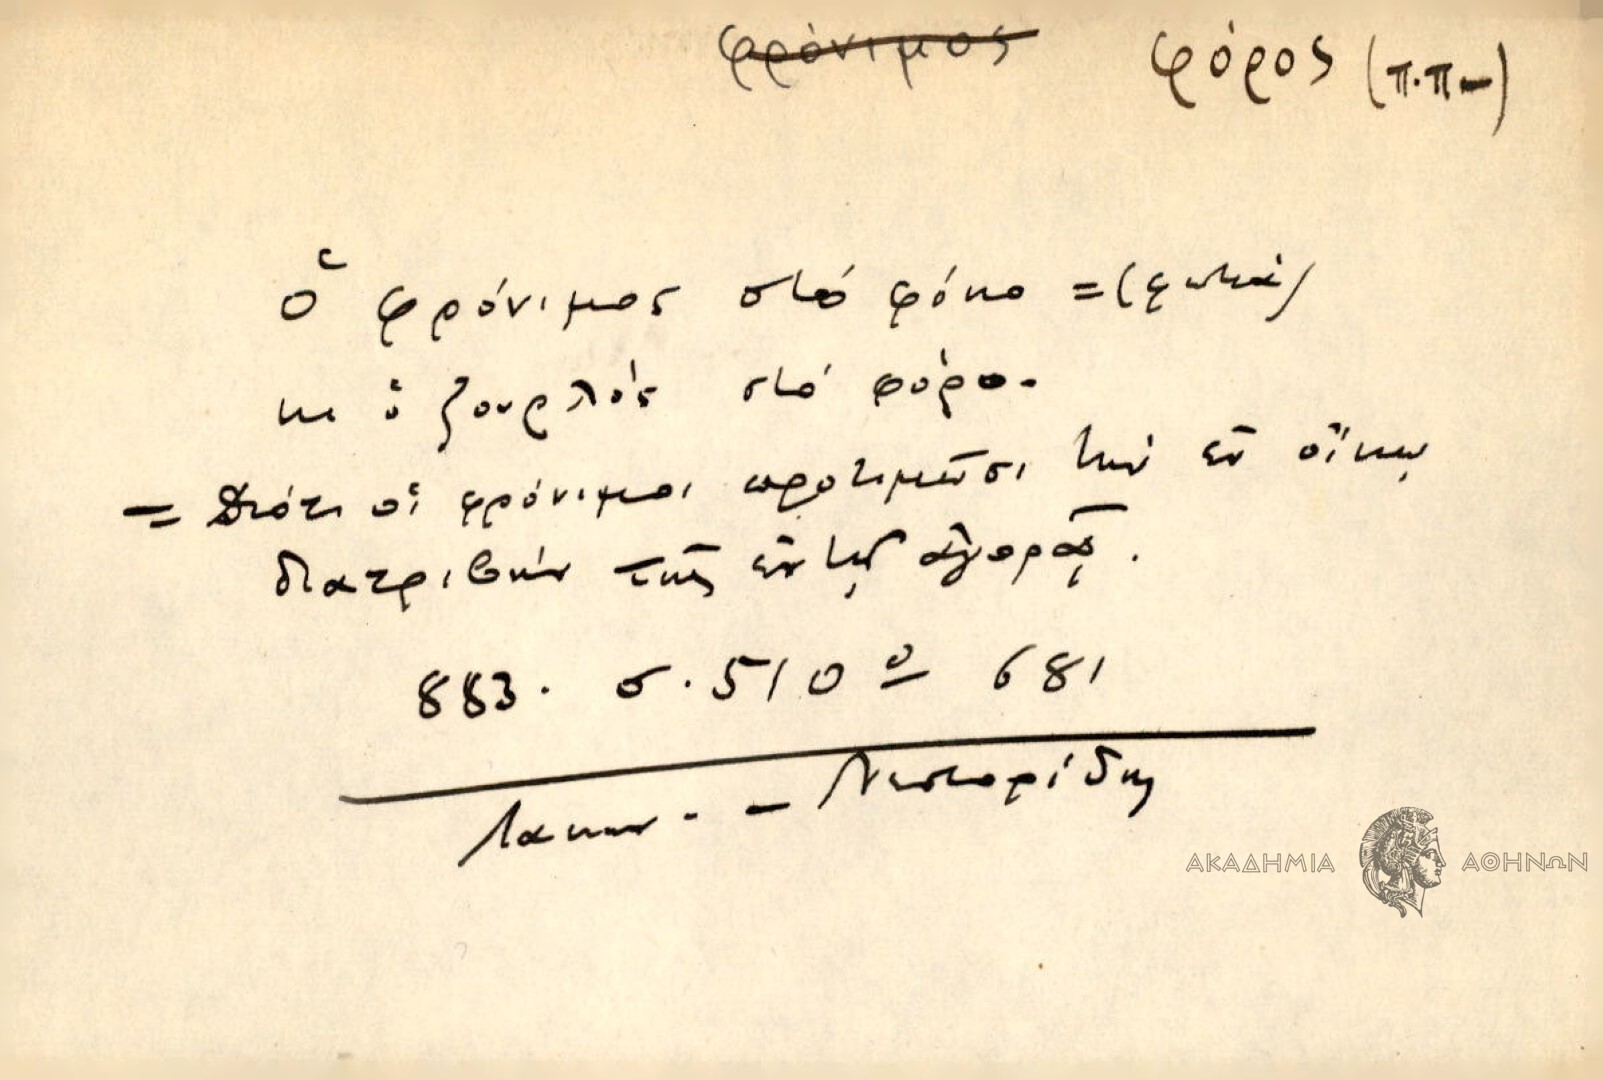 φρόνιμος φόρος (π.π-)
Ὁ φρόνιμος στὸ φόκο = (φωτιά)
κι ὁ ζουρλὸς στὸ φόρο.
= Διότι οἱ φρόνιμοι προτιμῶσι τὴν ἐν οἴκῳ
διατριβὴν τῆς ἐν τῇ ἀγορᾷ.
883. σ. 510 ο 681
Λακων. - Νεστορίδης
ΑΚΑΔΗΜΙΑ ΑΘΗΝΩΝ